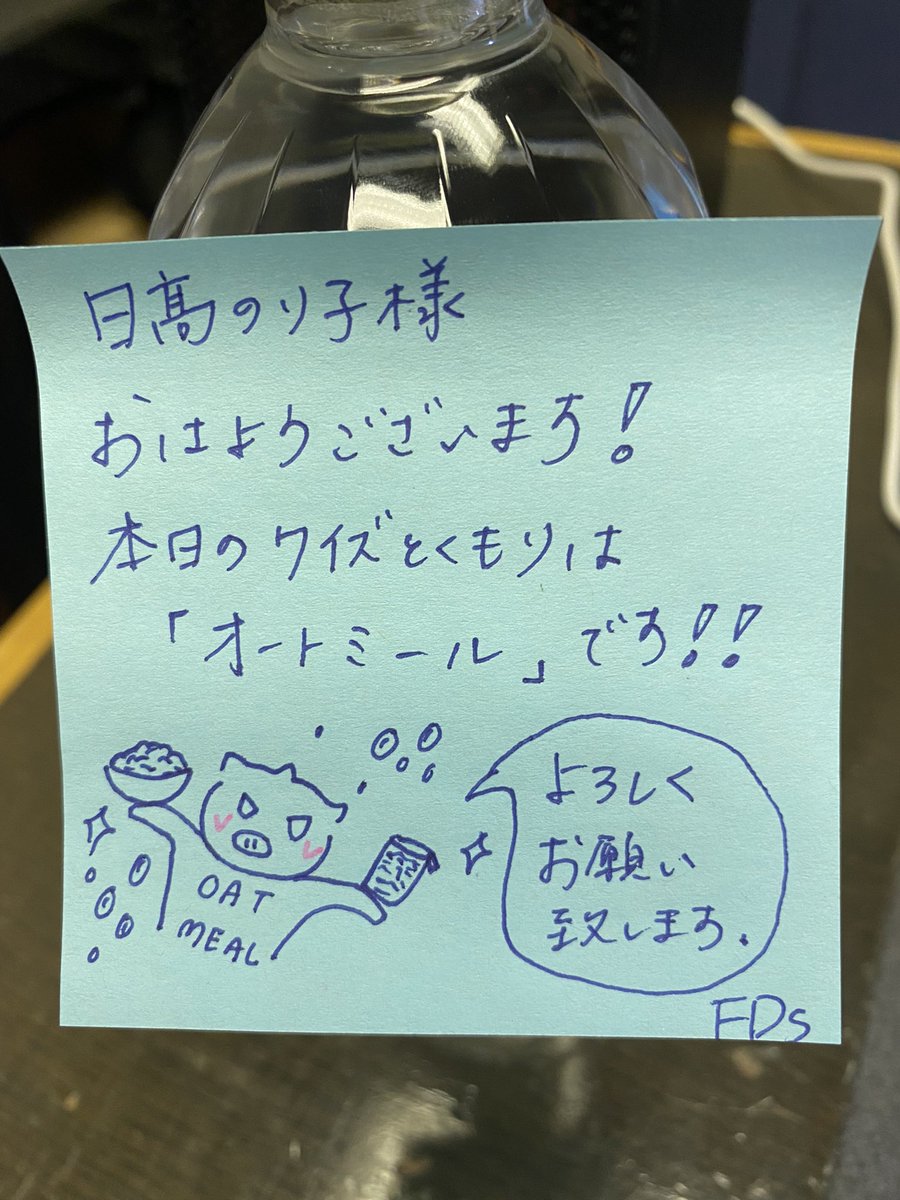 日髙のり子様
おはようございます!
本日のクイズとくもりは
「オートミール」です!!
OAT
MEAL
よろしく
お願い
致します.
FDs